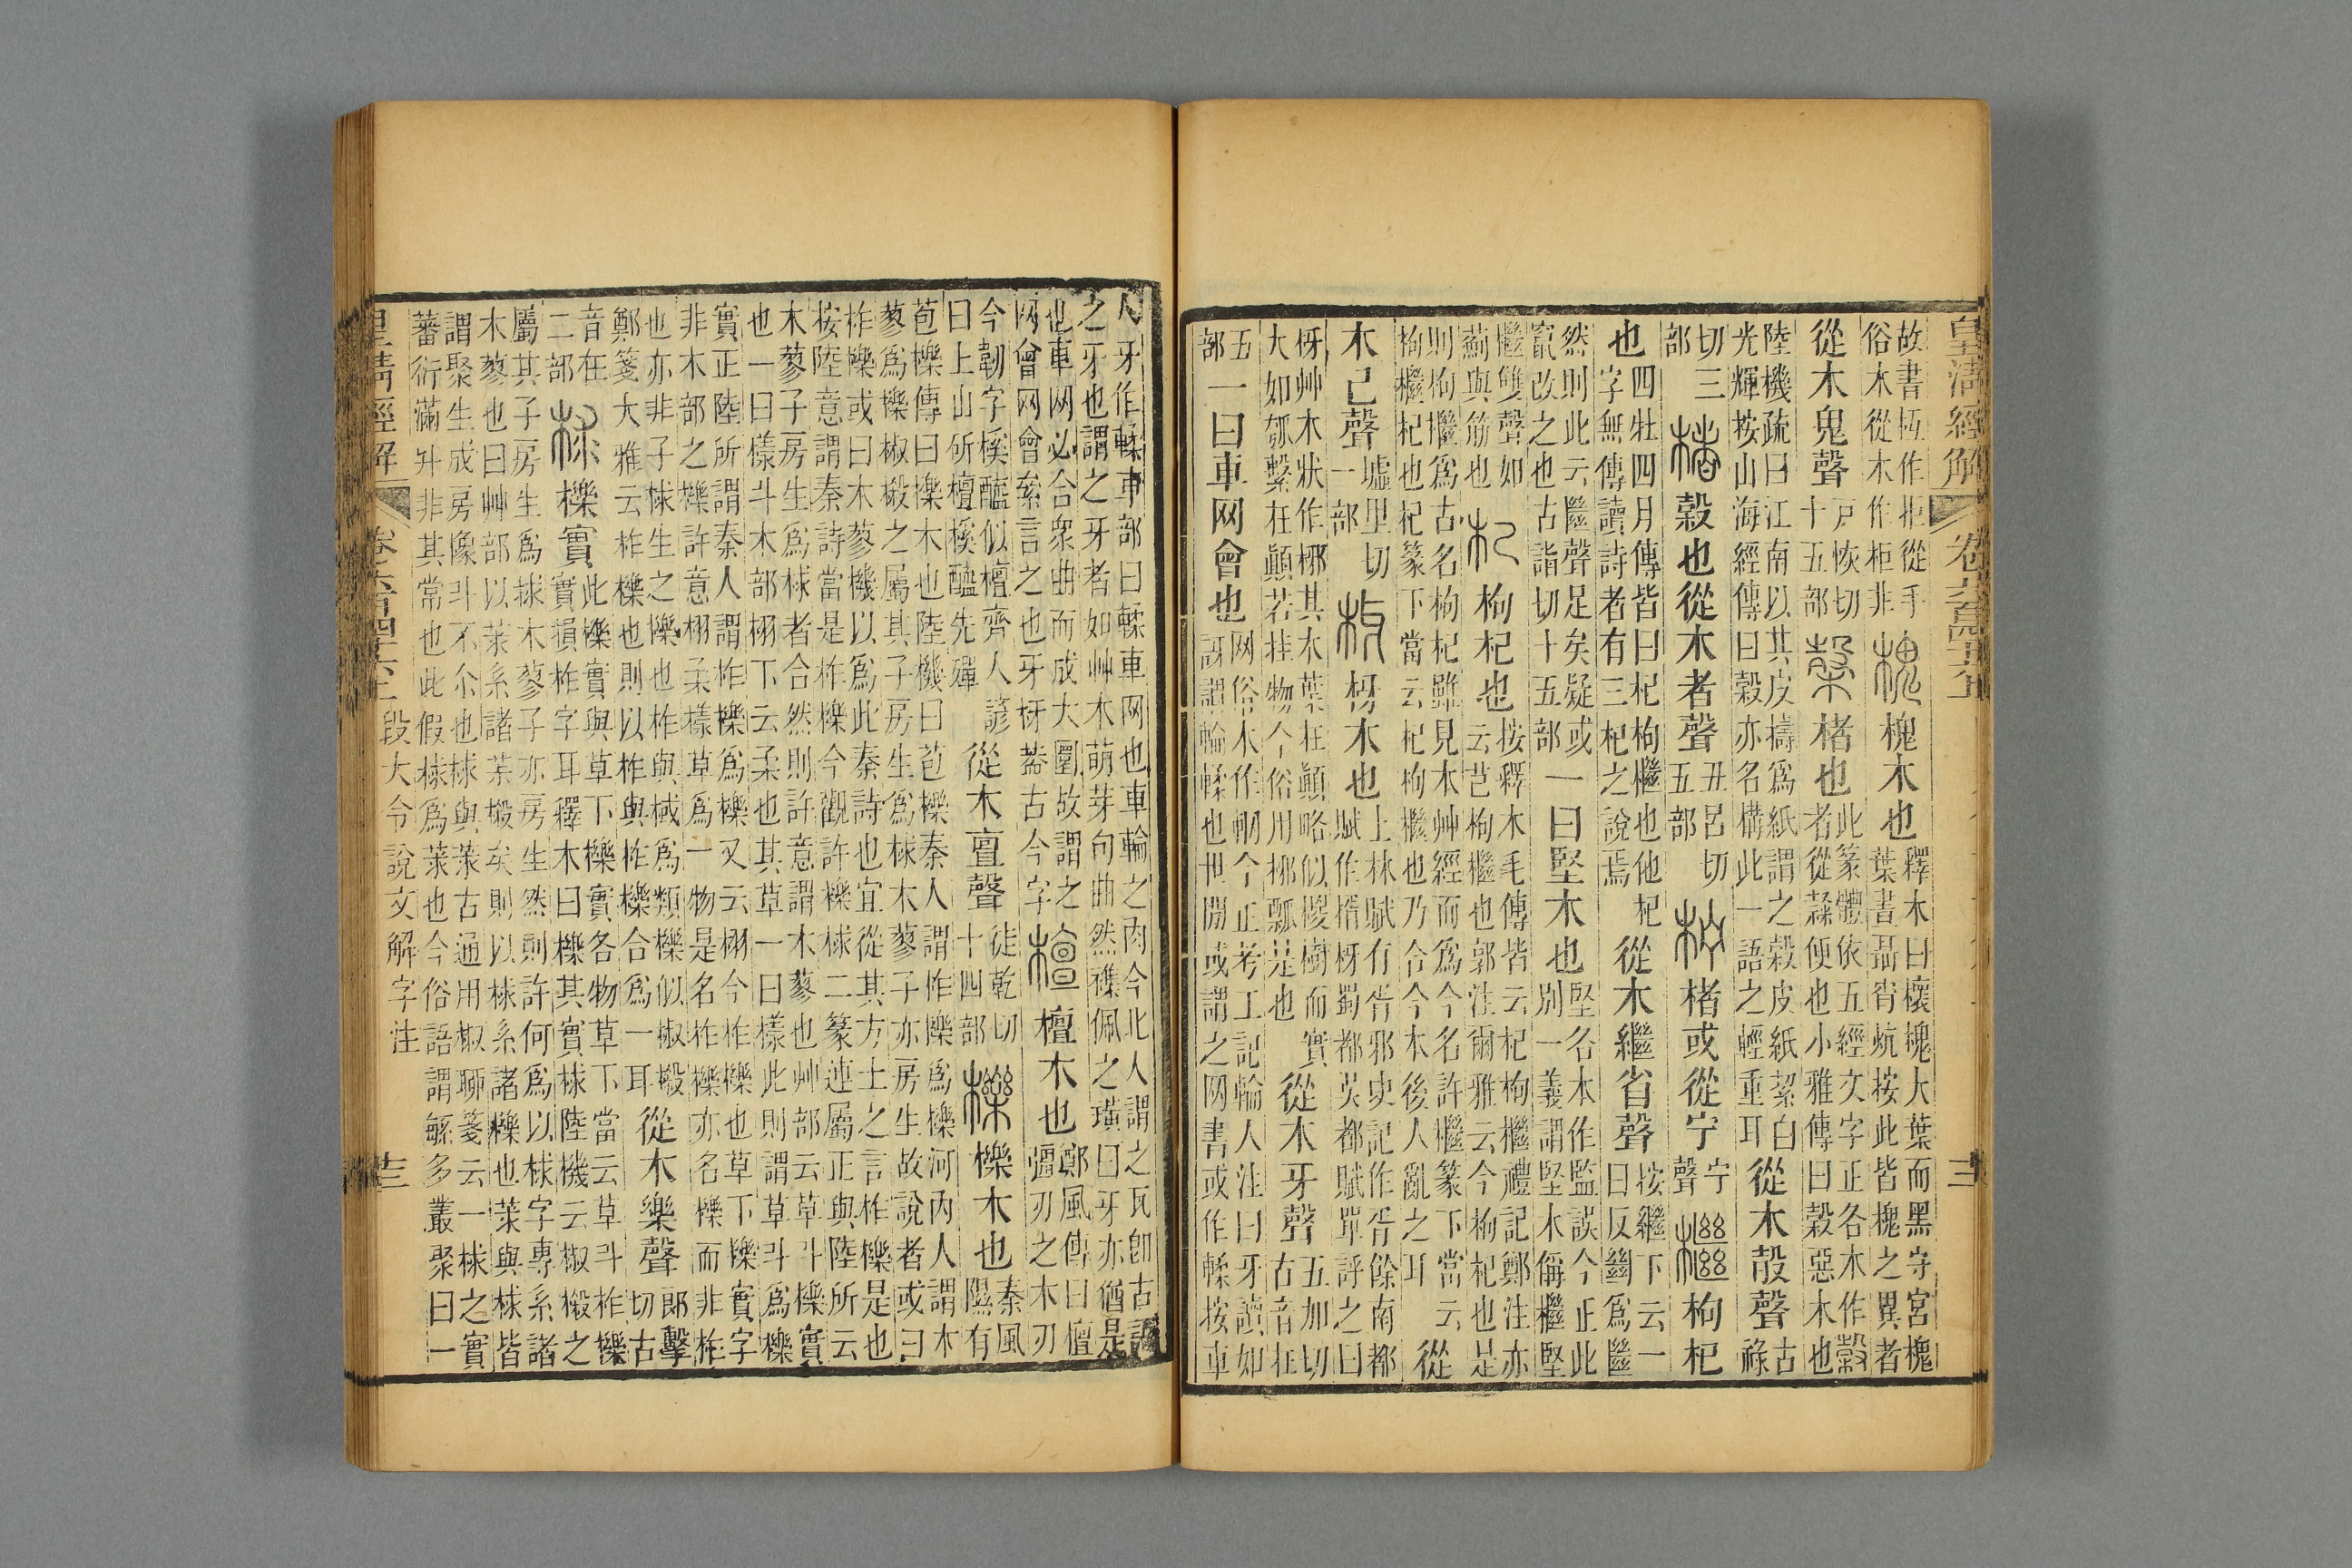 皇清經解
故書枑作拒從手
俗木從木作柜非
槐 槐木也
釋木曰櫰槐大葉而黑守宮槐
葉晝聶宵炕按此皆槐之異者
從木鬼聲
戸恢切
十五部
榖 楮也
此篆體依五經文字正各本作榖
者從隸便也小雅傳曰榖惡木也
陸機疏曰江南以其皮擣爲紙謂之榖皮紙絜白
光輝按山海經傳曰榖亦名構此一語之輕重耳
從木㱿聲
古
祿
切三
部
楮 榖也從木者聲
丑呂切
五部
柠 楮或從宁
宁
聲
檵 枸杞
也
四牡四月傳皆曰杞枸檵也他杞
字無傳讀詩者有三杞之說焉
從木繼省聲
按繼下云一
曰反㡭爲繼
然則此云繼聲足矣疑或
竄改之也古詣切十五部
一曰堅木也
堅各本作監誤今正此
別一義謂堅木偁檵堅
檵雙聲如
薊與筋也
杞 枸杞也
按釋木毛傳皆云杞枸檵禮記鄭注亦
云芑枸檵也郭注爾雅云今枸杞也是
則枸檵爲古名枸杞雖見本艸經而爲今名許檵篆下當云
枸檵杞也杞篆下當云杞枸檵也乃合今本後人亂之耳
從
木己聲
墟里切
一部
枒 枒木也
上林賦有胥邪史記作胥餘南都
賦作楈枒蜀都吳都賦單呼之曰
枒艸木狀作梛其木葉在顚略似椶樹而實
大如瓠繫在顚若挂物今俗用梛瓢是也
從木牙聲
五加切
古音在
五
部
一曰車网會也
网俗本作輞今正考工記輪人注曰牙讀如
訝謂輪輮也世閒或謂之网書或作輮按車
人牙作輮車部曰輮車网也車輪之肉今北人謂之瓦卽古謂
之牙也謂之牙者如艸木萌芽句曲然襍佩之璜曰牙亦猶是
也車网必合衆曲而成大圜故謂之
网會网會絫言之也牙枒葢古今字
檀 檀木也
鄭風傳曰檀
彊刃之木刃
今韌字榽醯似檀齊人諺
曰上山斫檀榽醯先殫
從木亶聲
徒乾切
十四部
櫟 櫟木也
秦風
隰有
苞櫟傳曰櫟木也陸機曰苞櫟秦人謂柞櫟爲櫟河內人謂木
蓼爲櫟椒樧之屬其子房生爲梂木蓼子亦房生故說者或曰
柞櫟或曰木蓼機以爲此秦詩也宜從其方土之言柞櫟是也
按陸意謂秦詩當是柞櫟今觀許櫟梂二篆連屬正與陸所云
木蓼子房生爲梂者合然則許意謂木蓼也艸部云草斗櫟實
也一曰樣斗木部栩下云柔也其草一曰樣此則謂草斗爲櫟
實正陸所謂秦人謂柞櫟爲櫟又云栩今柞櫟也草下櫟實字
非木部之櫟許意栩柔樣草爲一物是名柞櫟亦名櫟而非柞
也亦非子梂生之櫟也柞與棫爲類櫟似椒樧
鄭箋大雅云柞櫟也則以柞與柞櫟合爲一耳
從木樂聲
郎擊
切古
音在
二部
梂 櫟實
此櫟實與草下櫟實各物草下當云草斗柞櫟
實損柞字耳釋木曰櫟其實梂陸機云椒樧之
屬其子房生爲梂木蓼子亦房生然則許何爲以梂字專系諸
木蓼也曰艸部以莍系諸茮樧矣則以梂系諸櫟也莍與梂皆
謂聚生成房像斗不尒也梂與莍古通用椒聊箋云一梂之實
蕃衍滿升非其常也此假梂爲莍也今俗語謂緐多叢聚曰一
皇清經解
段大令說文解字注